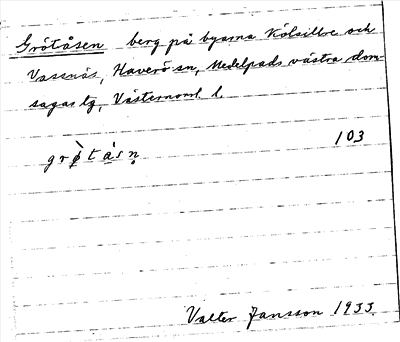 Grötåsen berg på byarna Kölsillre och
Vassnäs, Haverö sn, Medelpads västra dom-
sagas tg, Västernorrl. l.
grö̀tásn̥
103
Valter Jansson 1933.